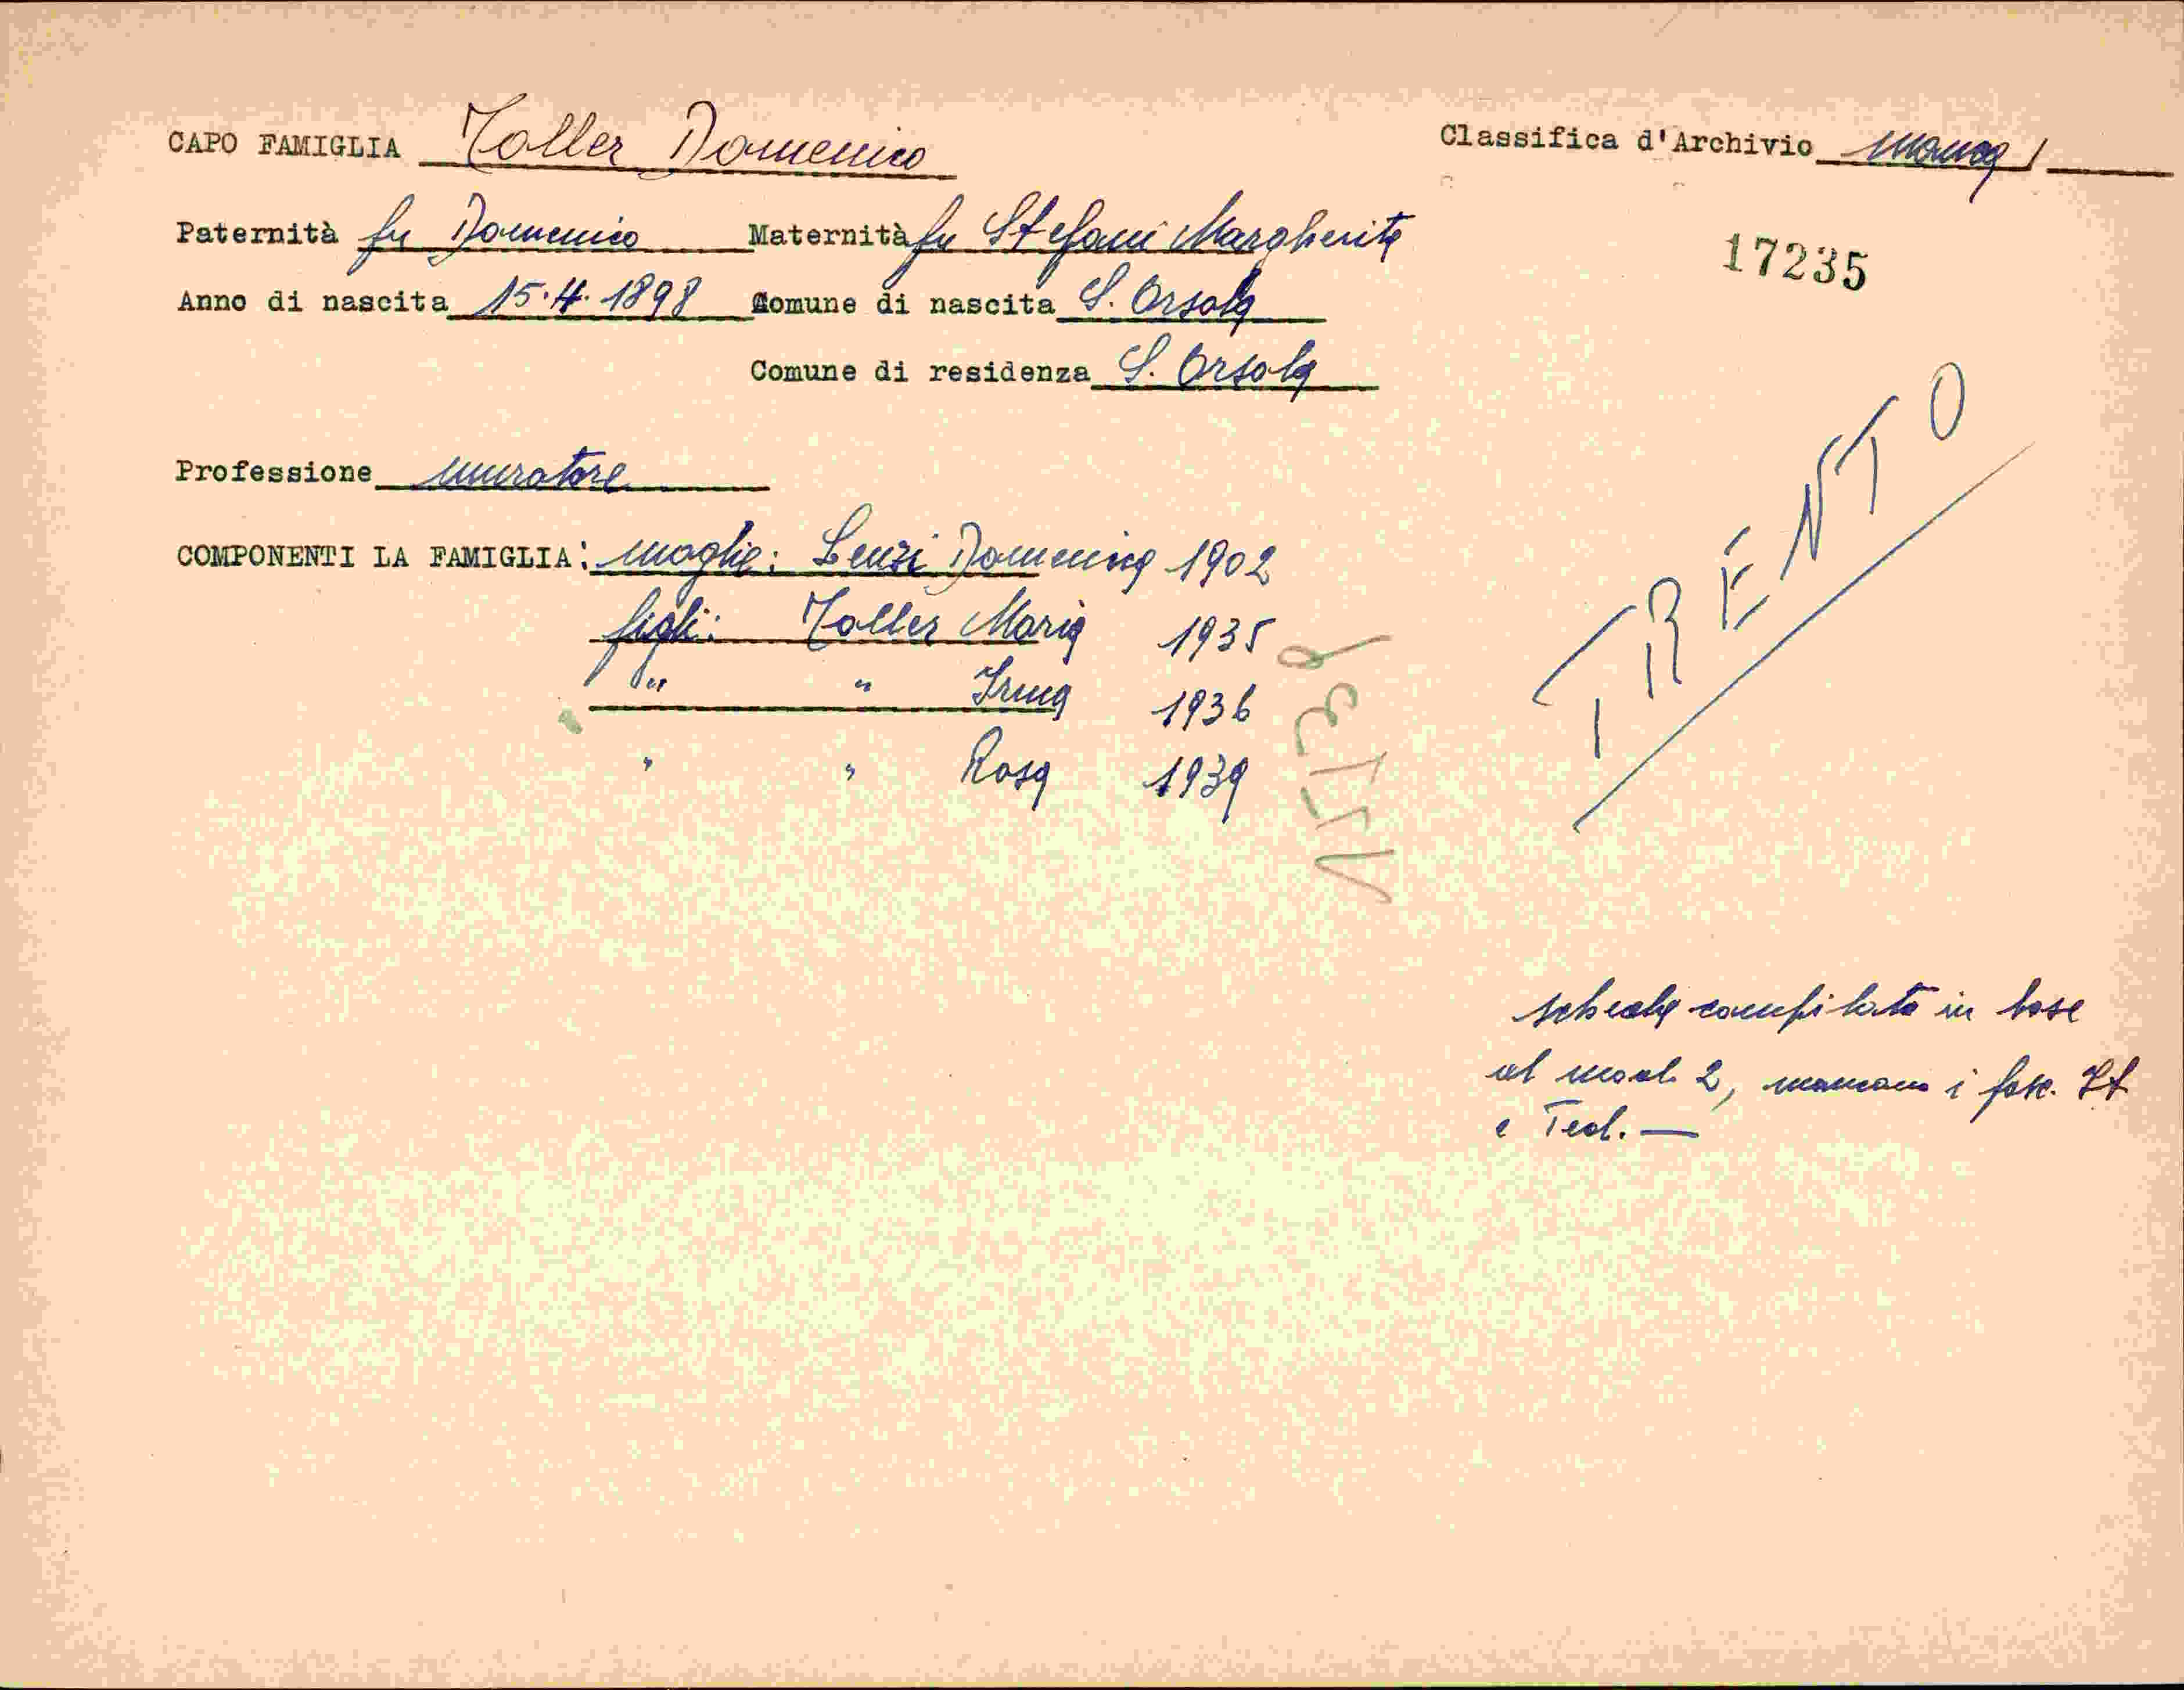 CAPO FAMIGLIA Toller Domenico
Classifica d'Archivio manca /
Paternità fu Domenico Maternità fu Stefani Margherita
17235
Anno di nascita 15.4.1898 Comune di nascita S. Orsola
Comune di residenza S. Orsola
Professione muratore
TRENTO
COMPONENTI LA FAMIGLIA: moglie: Lenzi Domenica 1902
figli: Toller Maria 1935
" " Irma 1936
" " Rosa 1939
scheda compilata in base
al mod. 2, mancano i fasc. It
e Ted. —